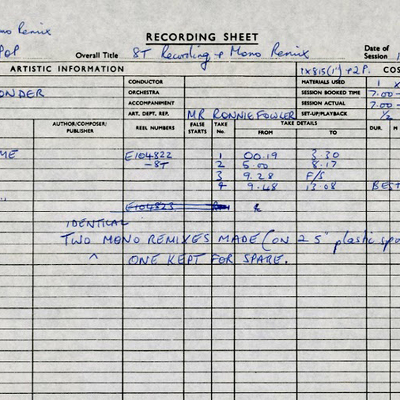 ono Remix
RECORDING SHEET
POP
Overall Title 8T Recording & Mono Remix
Date of
Session 1
ARTISTIC INFORMATION
1 x 815(1") + 2P.
COS
CONDUCTOR
MATERIALS USED 1 x
ONDER
ORCHESTRA
SESSION BOOKED TIME 7.00 -
ACCOMPANIMENT
SESSION ACTUAL 7.00 -
ART. DEPT. REP. MR RONNIE FOWLER
SET-UP/PLAYBACK 1/2
AUTHOR/COMPOSER/
PUBLISHER
REEL NUMBERS
FALSE
STARTS
TAKE
No.
TAKE DETAILS
FROM
TO
DUR.
M
ME E104822 1 00.19 3.30
-8T 2 5.00 8.17
3 9.28 F/S
4 9.48 13.08 BEST
E104823
IDENTICAL
TWO MONO REMIXES MADE (ON 2 5" plastic spo
^ ONE KEPT FOR SPARE.